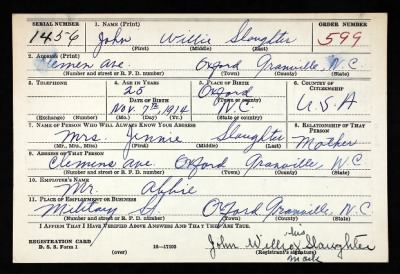 SERIAL NUMBER 1. NAME (Print) ORDER NUMBER
1456 John Willie Slaughter 599
(First) (Middle) (Last)
2. ADDRESS (Print)
Clemen Ave. Oxford Granville, N.C.
(Number and street or R. F. D. number) (Town) (County) (State)
3. TELEPHONE 4. AGE IN YEARS 5. PLACE OF BIRTH 6. COUNTRY OF CITIZENSHIP
25 Oxford
DATE OF BIRTH
Nov. 7th, 1914 N.C. U.S.A
(Exchange) (Number) (Mo.) (Day) (Yr.) (State or country)
7. NAME OF PERSON WHO WILL ALWAYS KNOW YOUR ADDRESS 8. RELATIONSHIP OF THAT PERSON
Mrs. Jennie Slaughter Mother
(Mr., Mrs., Miss) (First) (Middle) (Last)
9. ADDRESS OF THAT PERSON
Clemens Ave Oxford Granville, N.C
(Number and street or R. F. D. number) (Town) (County) (State)
10. EMPLOYER'S NAME
Mr.
11. PLACE OF EMPLOYMENT OR BUSINESS
Military St Oxford Granville, N.C
(Number and street or R. F. D. number) (Town) (County) (State)
I AFFIRM THAT I HAVE VERIFIED ABOVE ANSWERS AND THAT THEY ARE TRUE.
REGISTRATION CARD
D. S. S. Form 1 (over) 16—17105
his
John Willie x Slaughter
(Registrant's signature)
mark